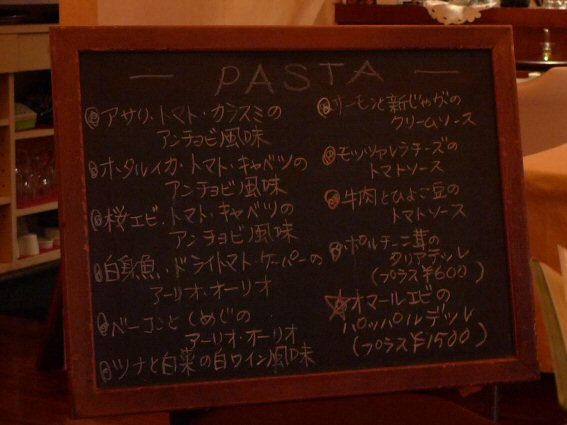 — PASTA —
アサリ・トマト・カラスミの
アンチョビ風味
ホタルイカ・トマト・キャベツの
アンチョビ風味
桜エビ・トマト・キャベツの
アンチョビ風味
白身魚・ドライトマト・ケーパーの
アーリオ・オーリオ
ベーコンとしめじの
アーリオ・オーリオ
ツナと白菜の白ワイン風味
サーモンと新じゃがの
クリームソース
モッツァレラチーズの
トマトソース
牛肉とひよこ豆の
トマトソース
ポルチーニ茸の
タリアテッレ
(プラス¥600)
オマールエビの
パッパルデッレ
(プラス¥1500)